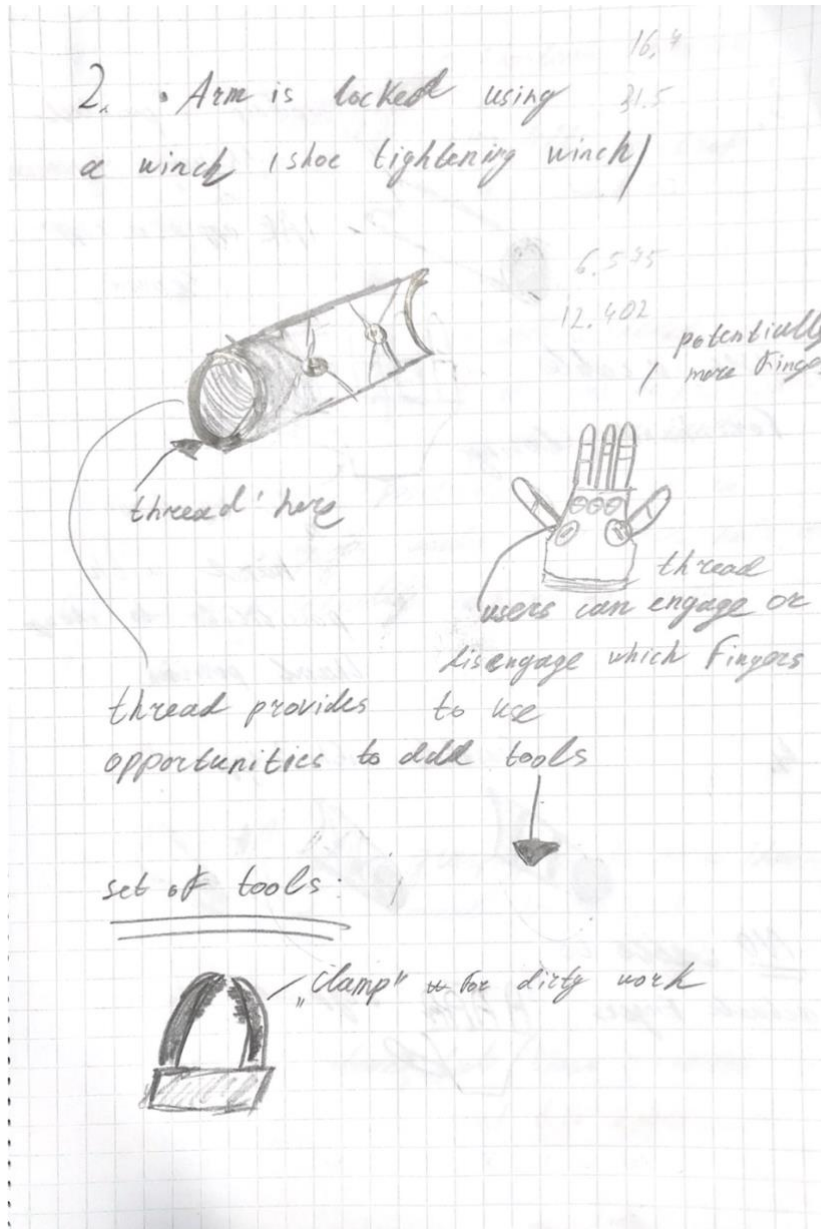 16,4
2. • Arm is locked using
31.5
a winch (shoe tightening winch)
6.545
12.402
potentially
more finge
thread here
thread
users can engage or
disengage which fingers
to use
thread provides
opportunities to add tools
set of tools:
"clamp" for dirty work